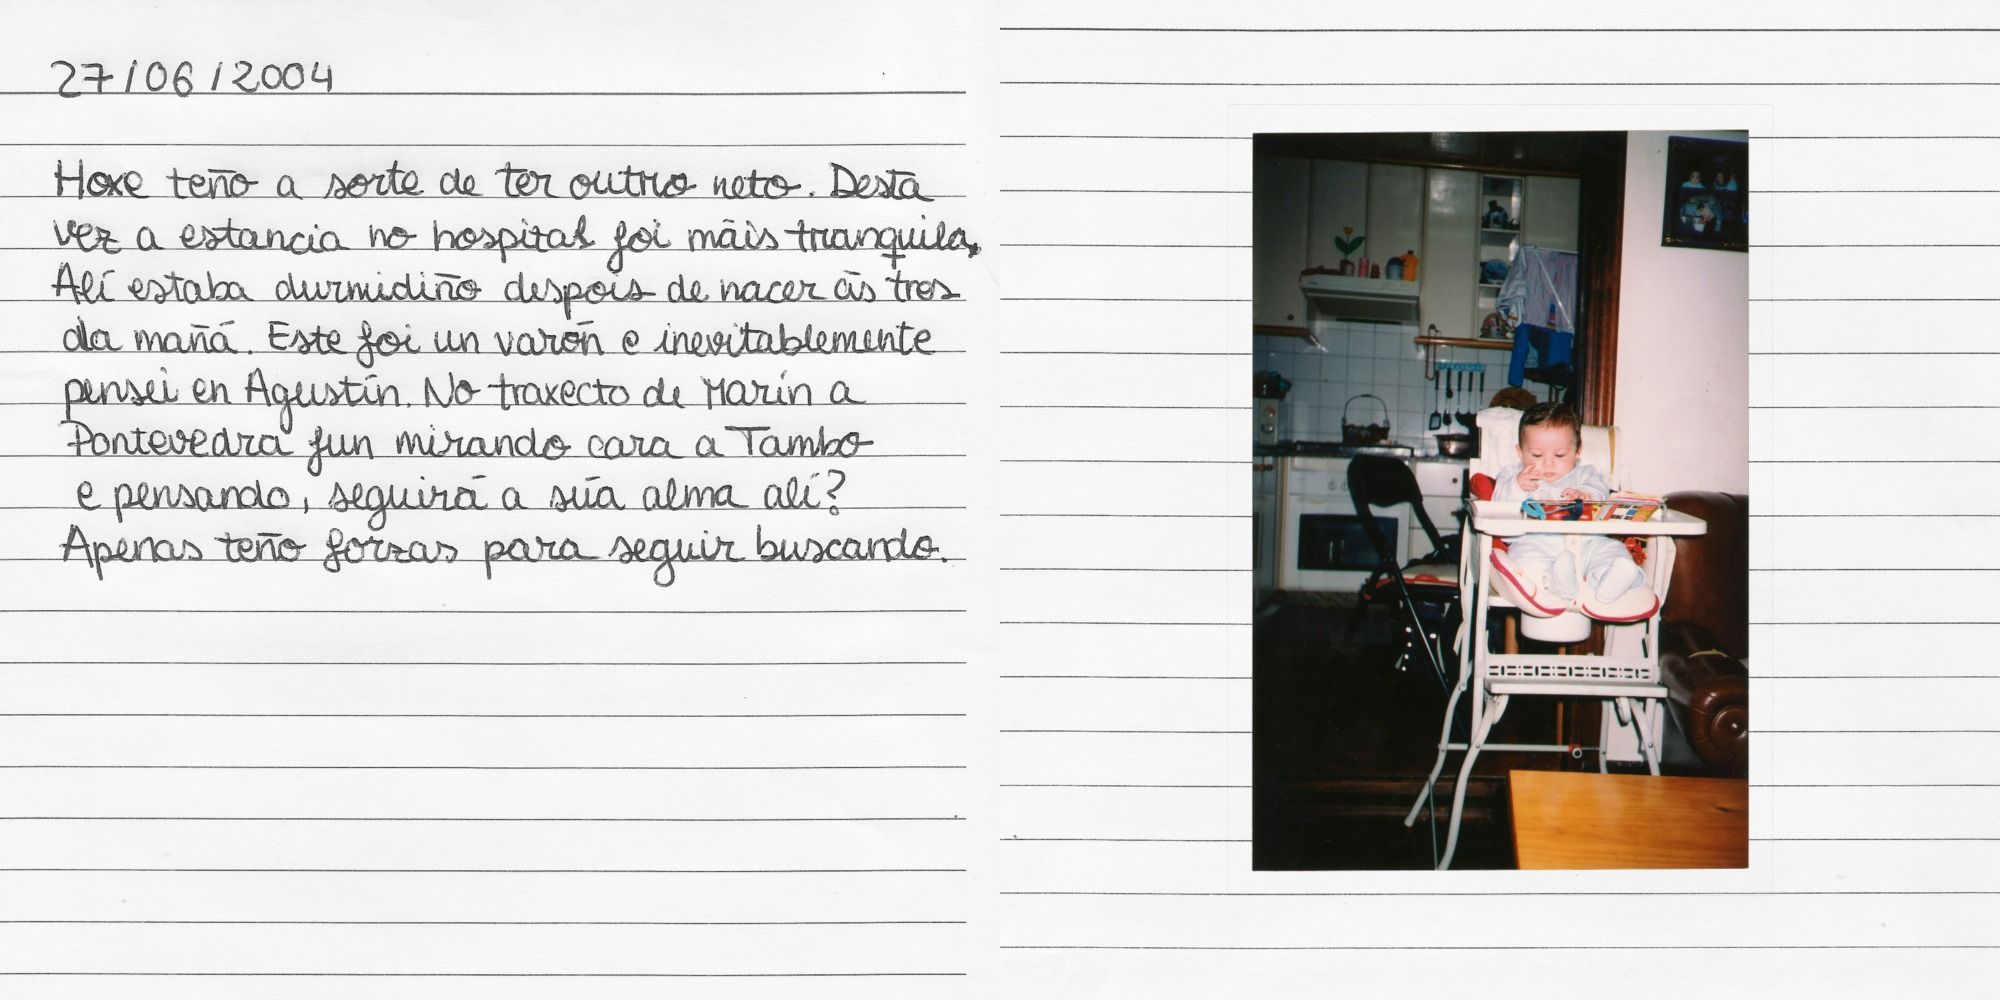 27/06/2004
Hoxe teño a sorte de ter outro neto. Desta
vez a estancia no hospital foi máis tranquila.
Alí estaba durmidiño despois de nacer ás tres
da mañá. Este foi un varón e inevitablemente
pensei en Agustín. No traxecto de Marín a
Pontevedra fun mirando cara a Tambo
e pensando, seguirá a súa alma alí?
Apenas teño forzas para seguir buscando.